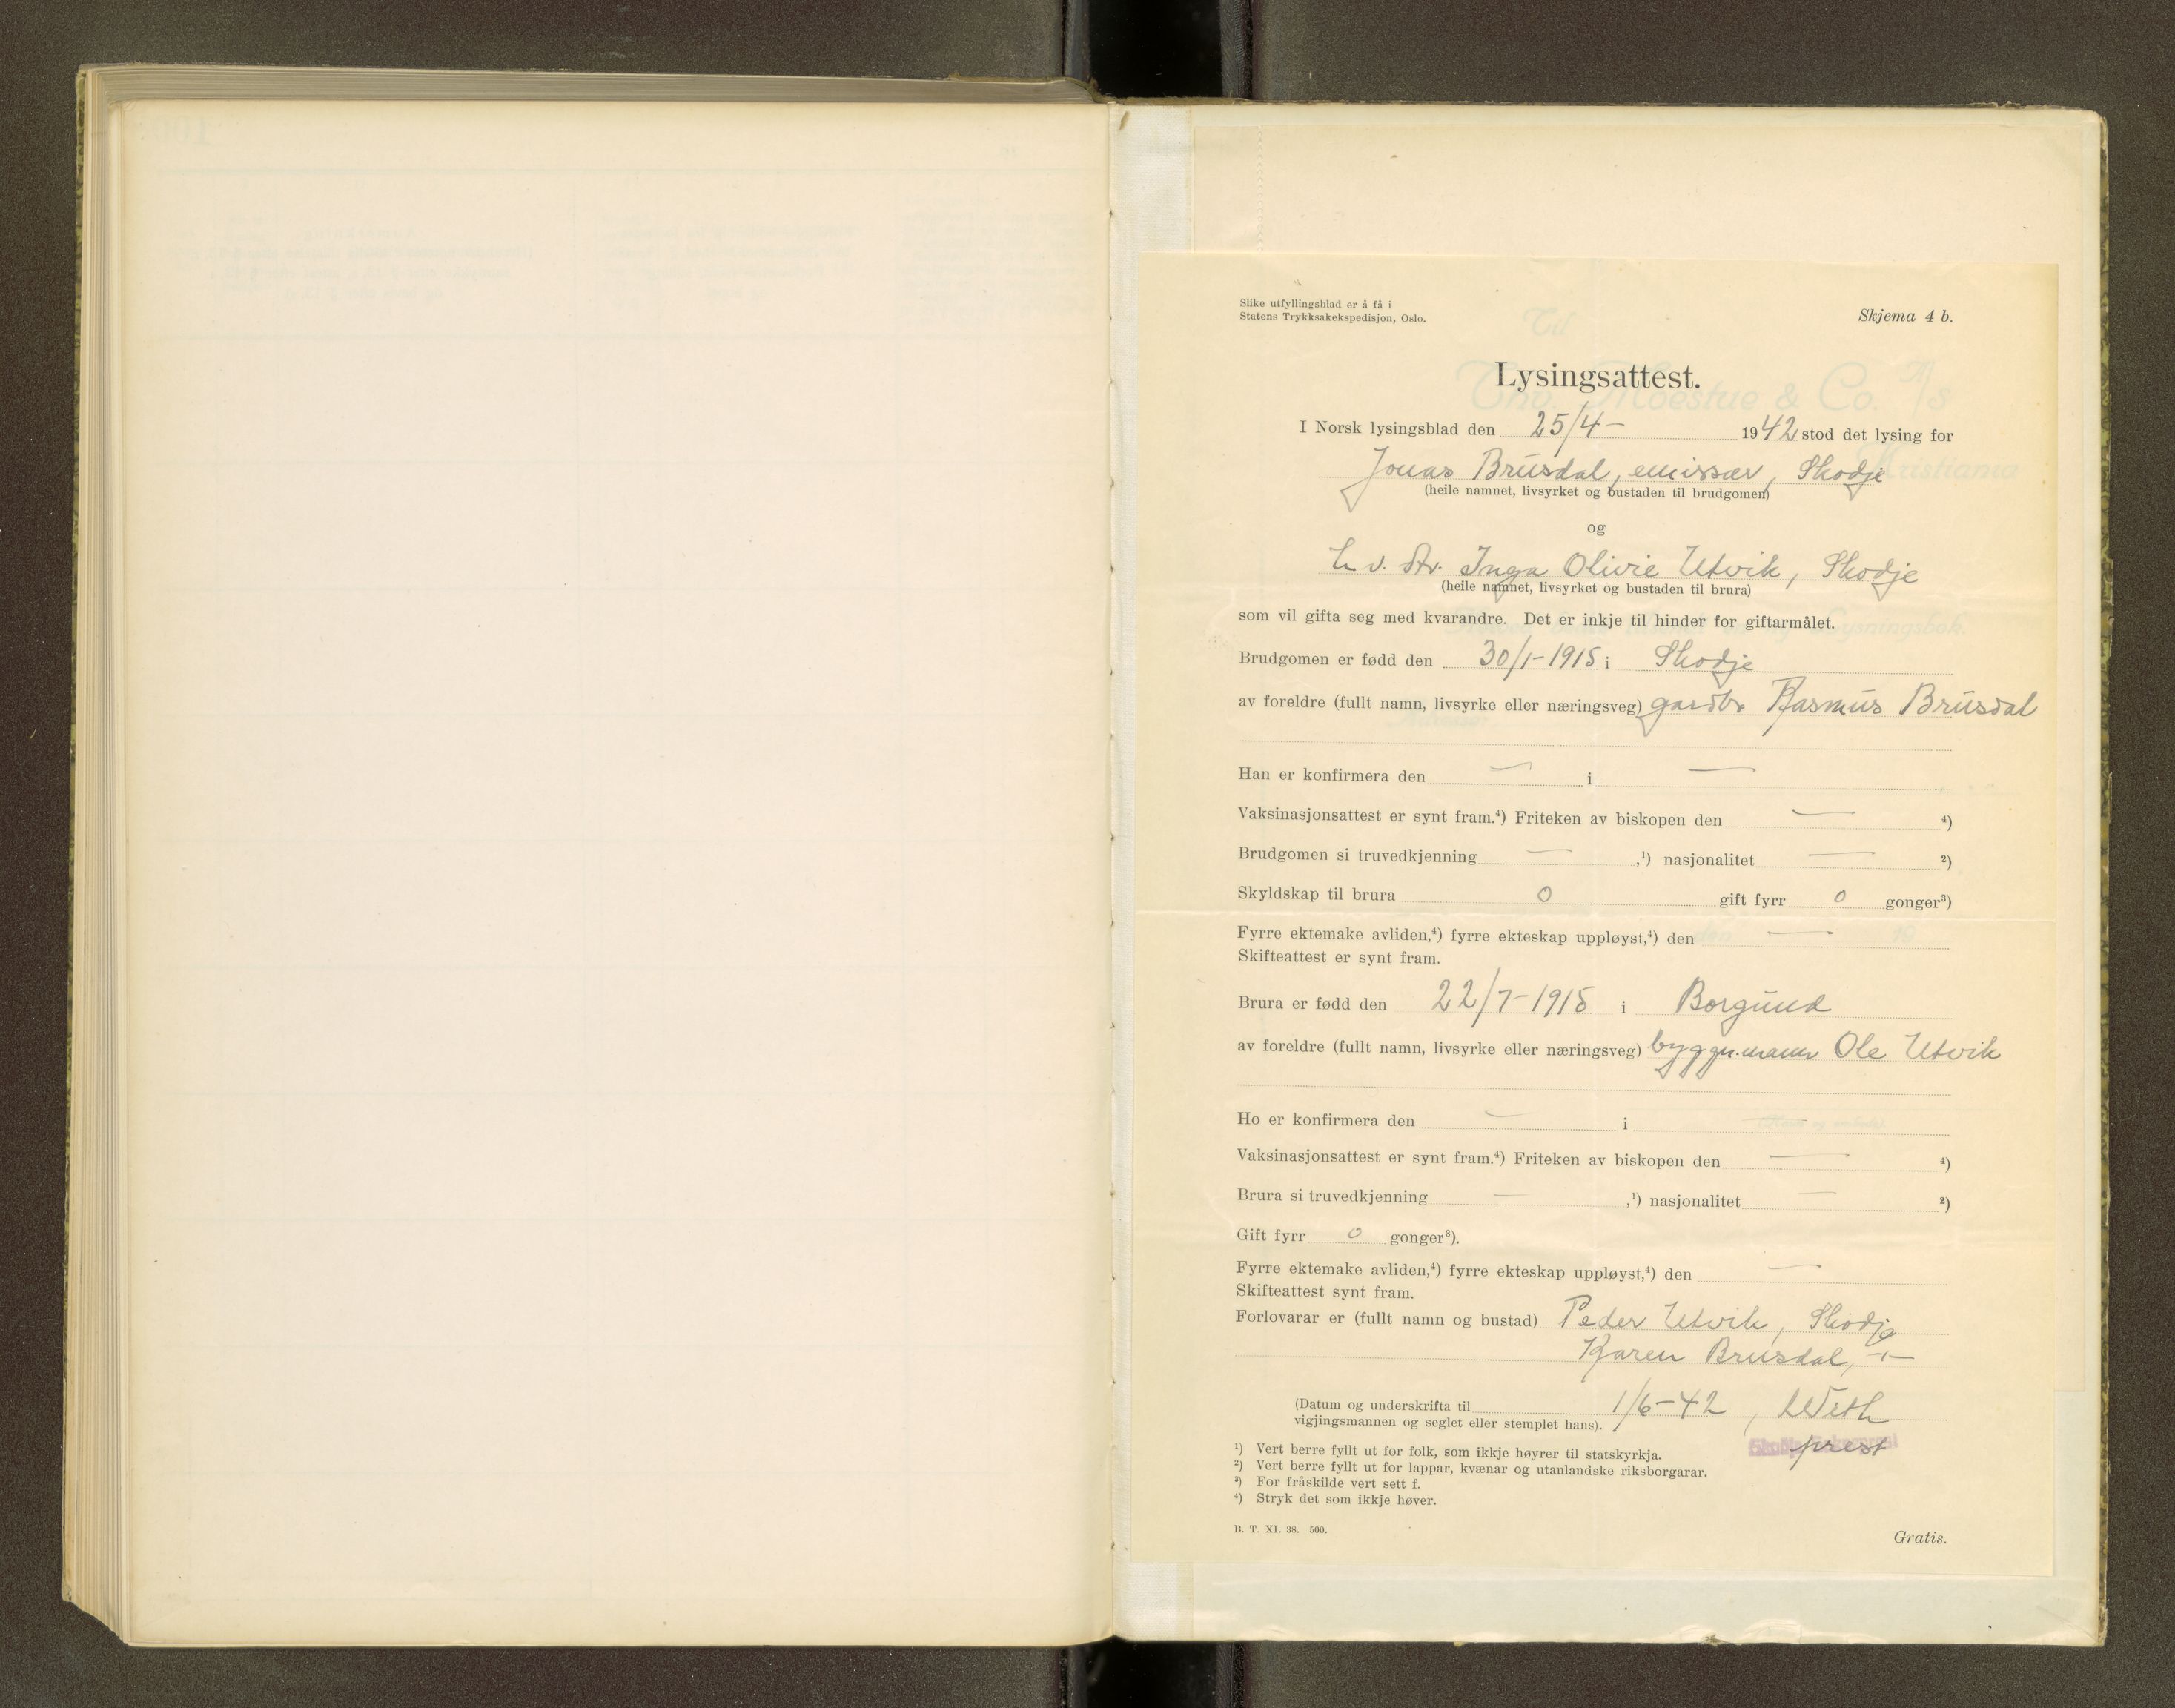 Slike utfyllingsblad er å få i
Statens Trykksakekspedisjon, Oslo.
Skjema 4 b.
Lysingsattest.
I Norsk lysingsblad den 25/4- 1942 stod det lysing for
Jonas Brusdal, emissær, Skodje
(heile namnet, livsyrket og bustaden til brudgomen)
og
Inga Olivie Utvik, Skodje
(heile namnet, livsyrket og bustaden til brura)
som vil gifta seg med kvarandre. Det er inkje til hinder for giftarmålet.
Brudgomen er fødd den 30/1-1915 i Skodje
av foreldre (fullt namn, livsyrke eller næringsveg) gardbr Rasmus Brusdal
Han er konfirmera den — i —
Vaksinasjonsattest er synt fram.⁴) Friteken av biskopen den — ⁴)
Brudgomen si truvedkjenning — ,¹) nasjonalitet — ²)
Skyldskap til brura 0 gift fyrr 0 gonger³)
Fyrre ektemake avliden,⁴) fyrre ekteskap uppløyst,⁴) den —
Skifteattest er synt fram.
Brura er fødd den 22/7-1915 i Borgund
av foreldre (fullt namn, livsyrke eller næringsveg) byggn.mann Ole Utvik
Ho er konfirmera den — i —
Vaksinasjonsattest er synt fram.⁴) Friteken av biskopen den — ⁴)
Brura si truvedkjenning — ,¹) nasjonalitet — ²)
Gift fyrr 0 gonger³).
Fyrre ektemake avliden,⁴) fyrre ekteskap uppløyst,⁴) den —
Skifteattest synt fram.
Forlovarar er (fullt namn og bustad) Peder Utvik, Skodje
Karen Brusdal, -"-
(Datum og underskrifta til 1/6-42,
vigjingsmannen og seglet eller stemplet hans).
prest
¹) Vert berre fyllt ut for folk, som ikkje høyrer til statskyrkja.
²) Vert berre fyllt ut for lappar, kvænar og utanlandske riksborgarar.
³) For fråskilde vert sett f.
⁴) Stryk det som ikkje høver.
B. T. XI. 38. 500.
Gratis.